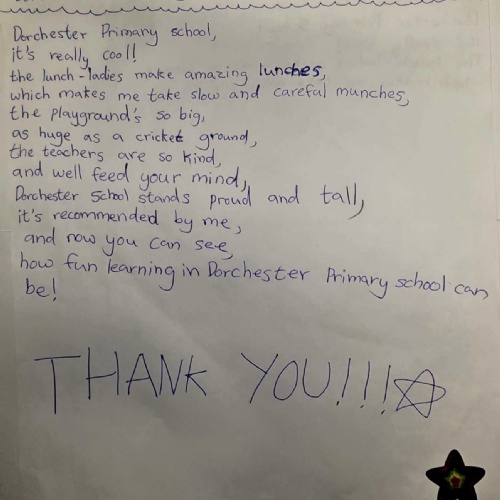 Dorchester Primary school,
it's really cool!
the lunch-ladies make amazing lunches,
which makes me take slow and careful munches,
the playground's so big,
as huge as a cricket ground,
the teachers are so kind,
and well feed your mind,
Dorchester School stands proud and tall,
it's recommended by me,
and now you can see,
how fun learning in Dorchester Primary school can
be!
THANK YOU!!!